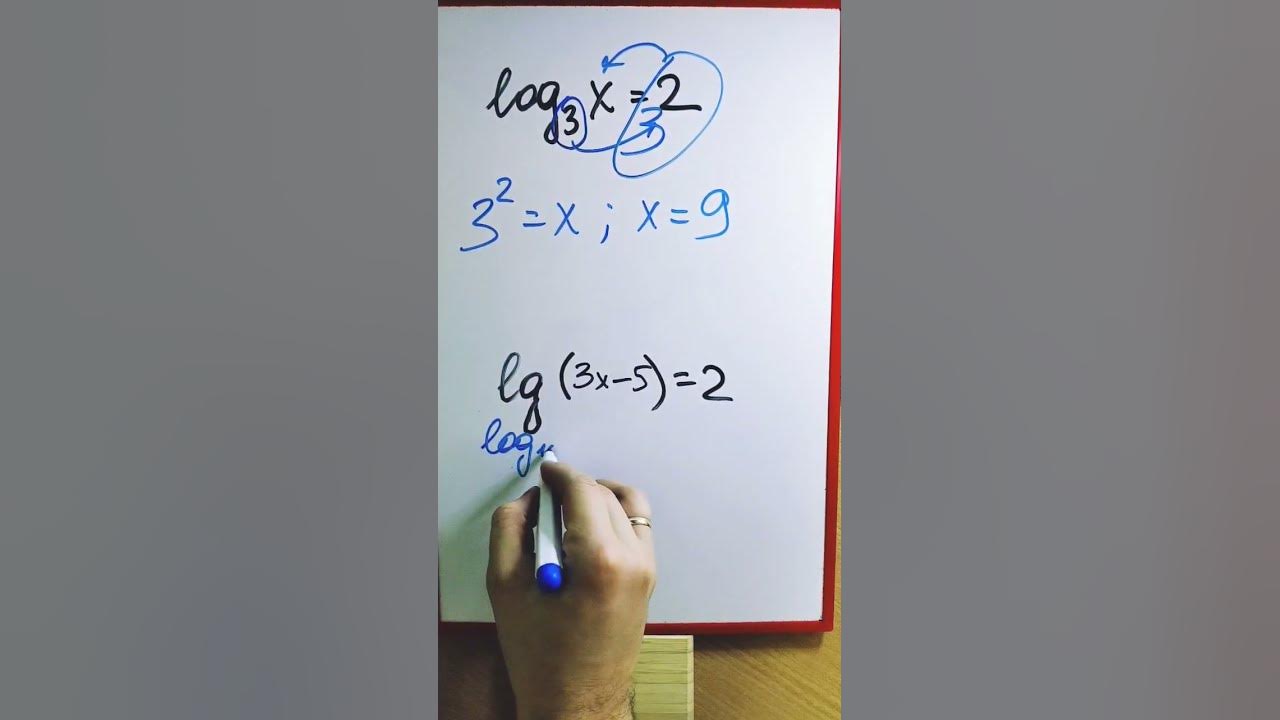 log₃ x = 2
3
3² = x ; x = 9
lg (3x-5) = 2
log